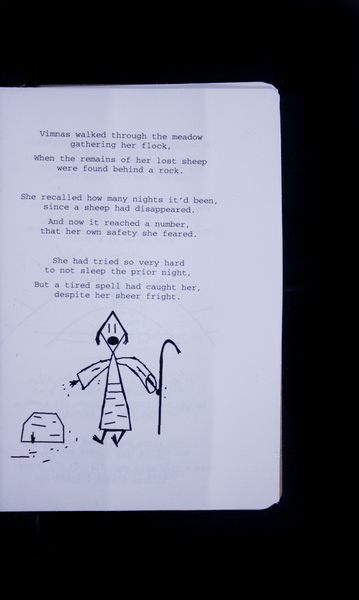 Vimnas walked through the meadow
gathering her flock,
When the remains of her lost sheep
were found behind a rock.
She recalled how many nights it'd been,
since a sheep had disappeared.
And now it reached a number,
that her own safety she feared.
She had tried so very hard
to not sleep the prior night,
But a tired spell had caught her,
despite her sheer fright.